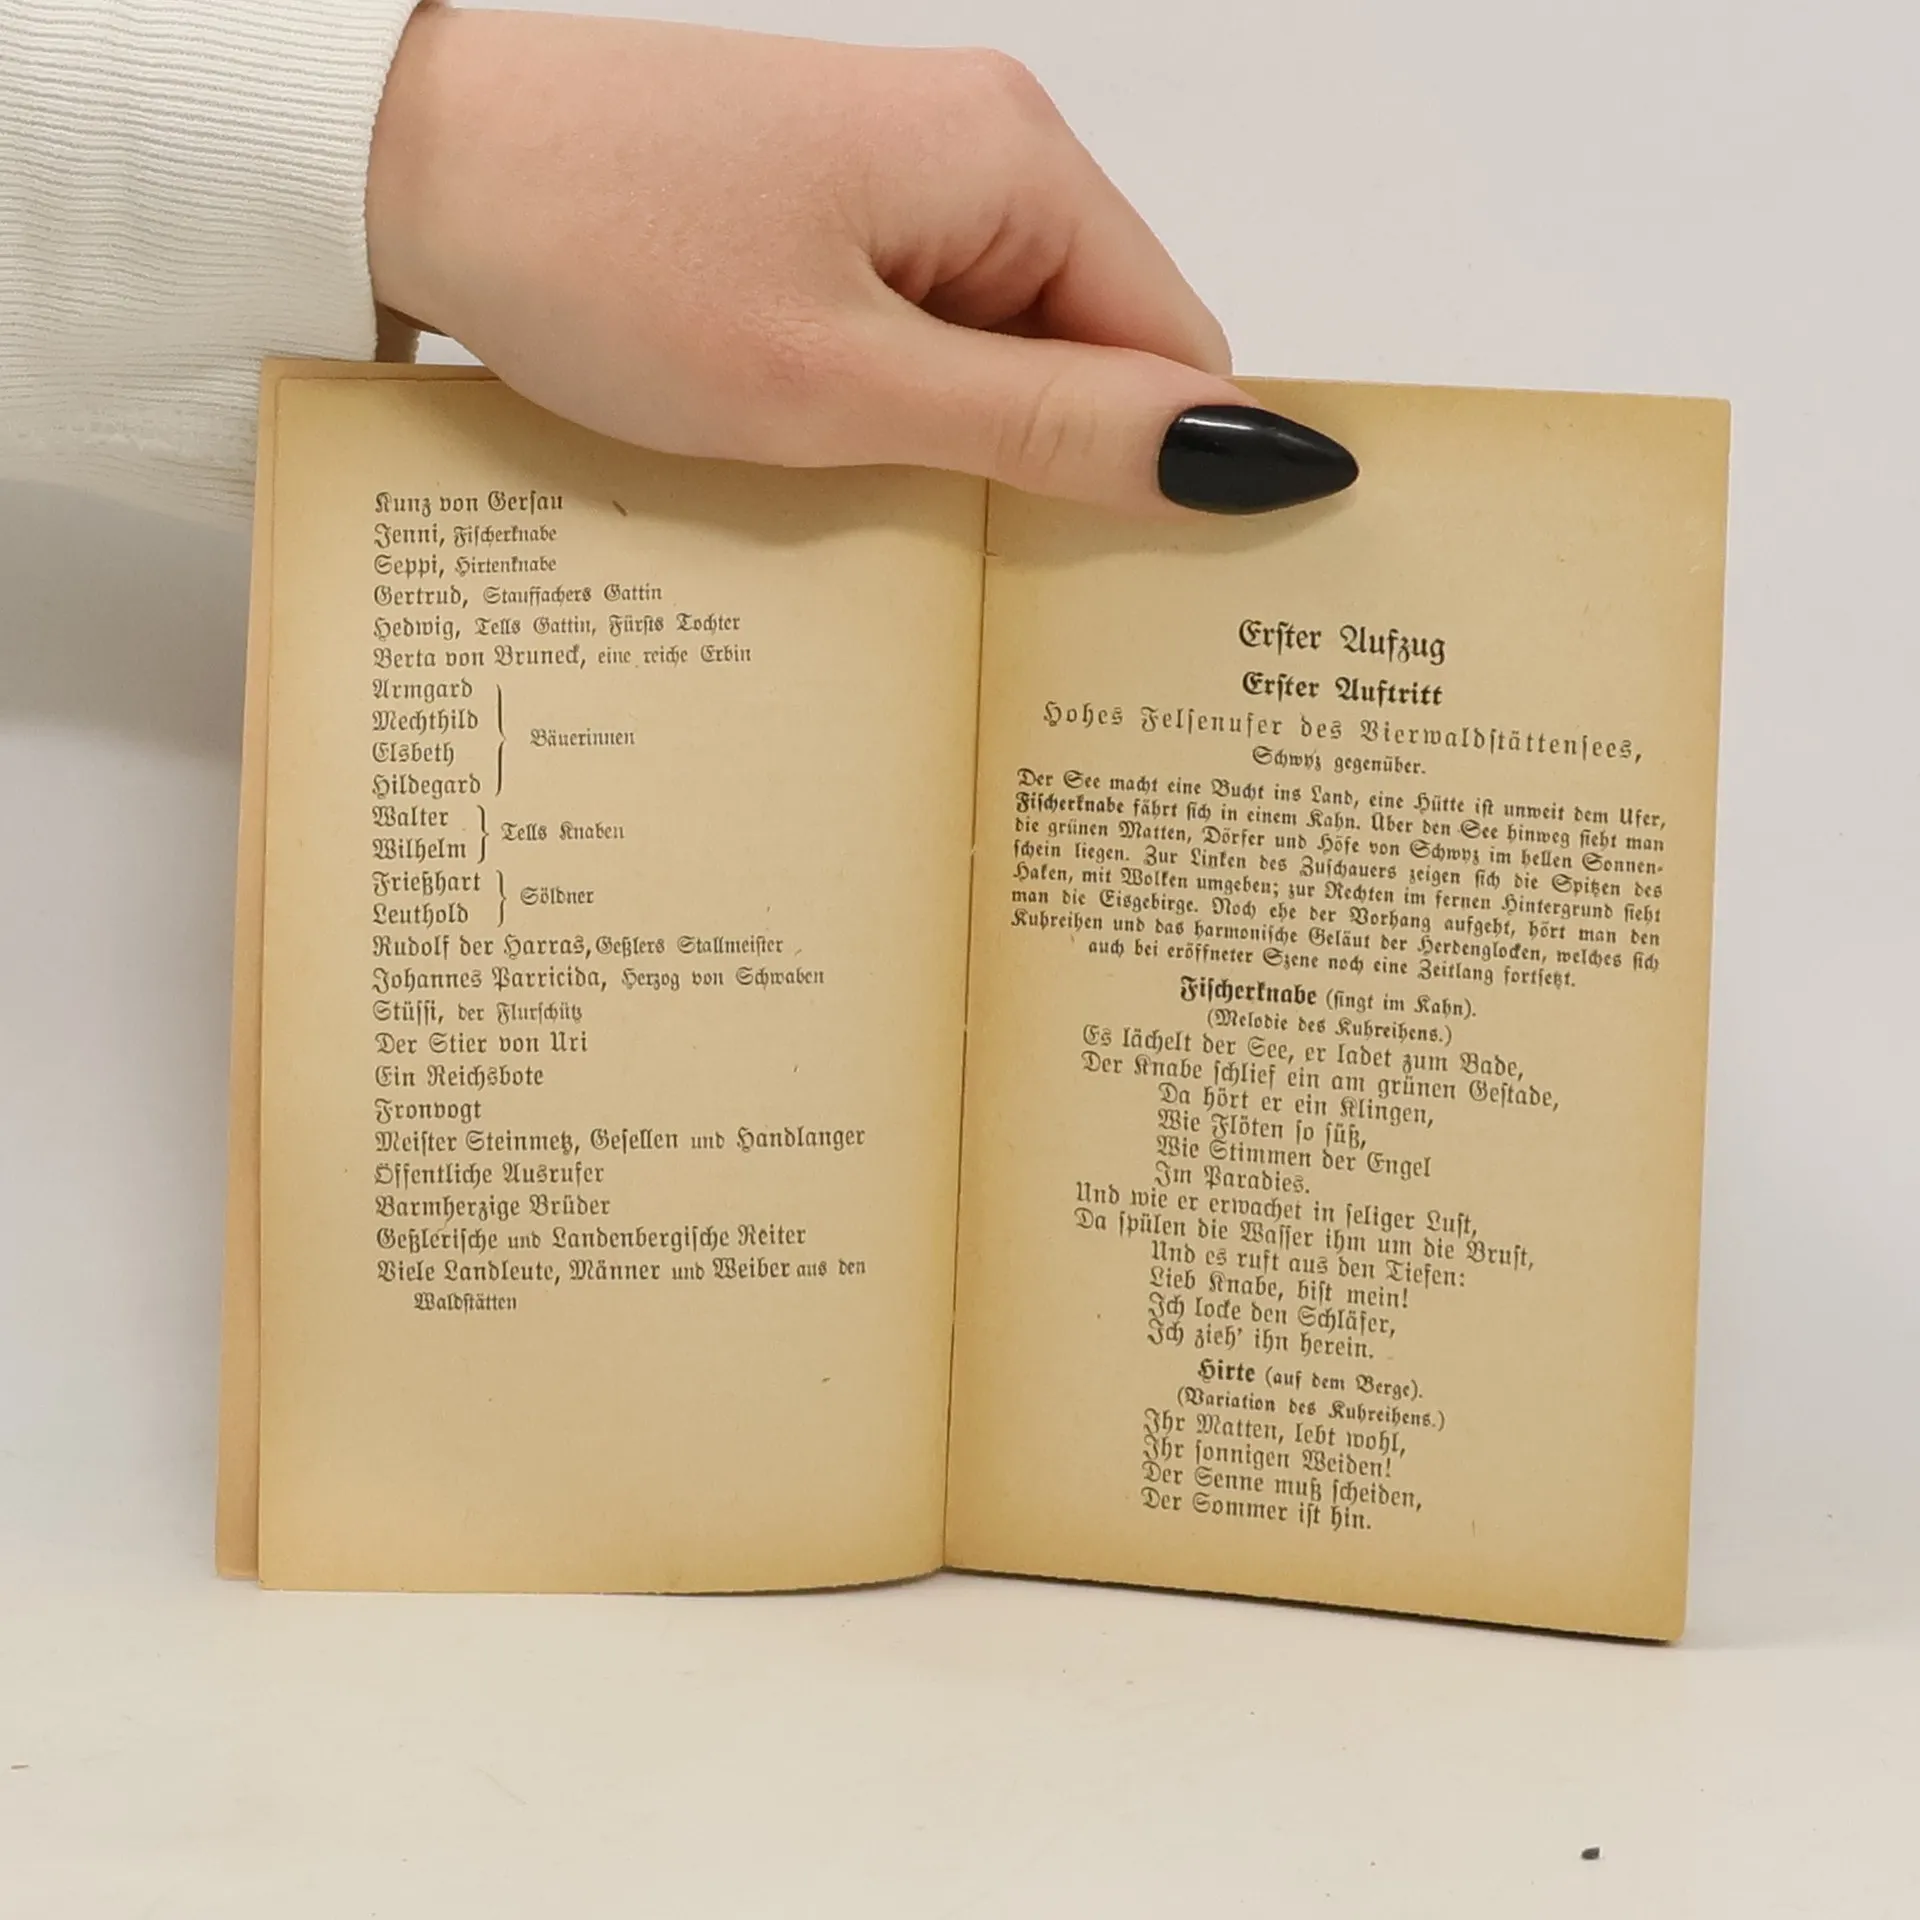 Kunz von Gerſau
Jenni, Fiſcherknabe
Seppi, Hirtenknabe
Gertrud, Stauffachers Gattin
Hedwig, Tells Gattin, Fürſts Tochter
Berta von Bruneck, eine reiche Erbin
Armgard
Mechthild
Elsbeth
Hildegard
Bäuerinnen
Walter
Wilhelm
Tells Knaben
Frießhart
Leuthold
Söldner
Rudolf der Harras, Geßlers Stallmeiſter
Johannes Parricida, Herzog von Schwaben
Stüſſi, der Flurſchütz
Der Stier von Uri
Ein Reichsbote
Fronvogt
Meiſter Steinmetz, Geſellen und Handlanger
Öffentliche Ausrufer
Barmherzige Brüder
Geßleriſche und Landenbergiſche Reiter
Viele Landleute, Männer und Weiber aus den
Waldſtätten
Erſter Aufzug
Erſter Auftritt
Hohes Felſenufer des Vierwaldſtättenſees,
Schwyz gegenüber.
Der See macht eine Bucht ins Land, eine Hütte iſt unweit dem Ufer,
Fiſcherknabe fährt ſich in einem Kahn. Über den See hinweg ſieht man
die grünen Matten, Dörfer und Höfe von Schwyz im hellen Sonnen-
ſchein liegen. Zur Linken des Zuſchauers zeigen ſich die Spitzen des
Haken, mit Wolken umgeben; zur Rechten im fernen Hintergrund ſieht
man die Eisgebirge. Noch ehe der Vorhang aufgeht, hört man den
Kuhreihen und das harmoniſche Geläut der Herdenglocken, welches ſich
auch bei eröffneter Szene noch eine Zeitlang fortſetzt.
Fiſcherknabe (ſingt im Kahn).
(Melodie des Kuhreihens.)
Es lächelt der See, er ladet zum Bade,
Der Knabe ſchlief ein am grünen Geſtade,
Da hört er ein Klingen,
Wie Flöten ſo ſüß,
Wie Stimmen der Engel
Im Paradies.
Und wie er erwachet in ſeliger Luſt,
Da ſpülen die Waſſer ihm um die Bruſt,
Und es ruft aus den Tiefen:
Lieb Knabe, biſt mein!
Ich locke den Schläfer,
Ich zieh' ihn herein.
Hirte (auf dem Berge).
(Variation des Kuhreihens.)
Ihr Matten, lebt wohl,
Ihr ſonnigen Weiden!
Der Senne muß ſcheiden,
Der Sommer iſt hin.